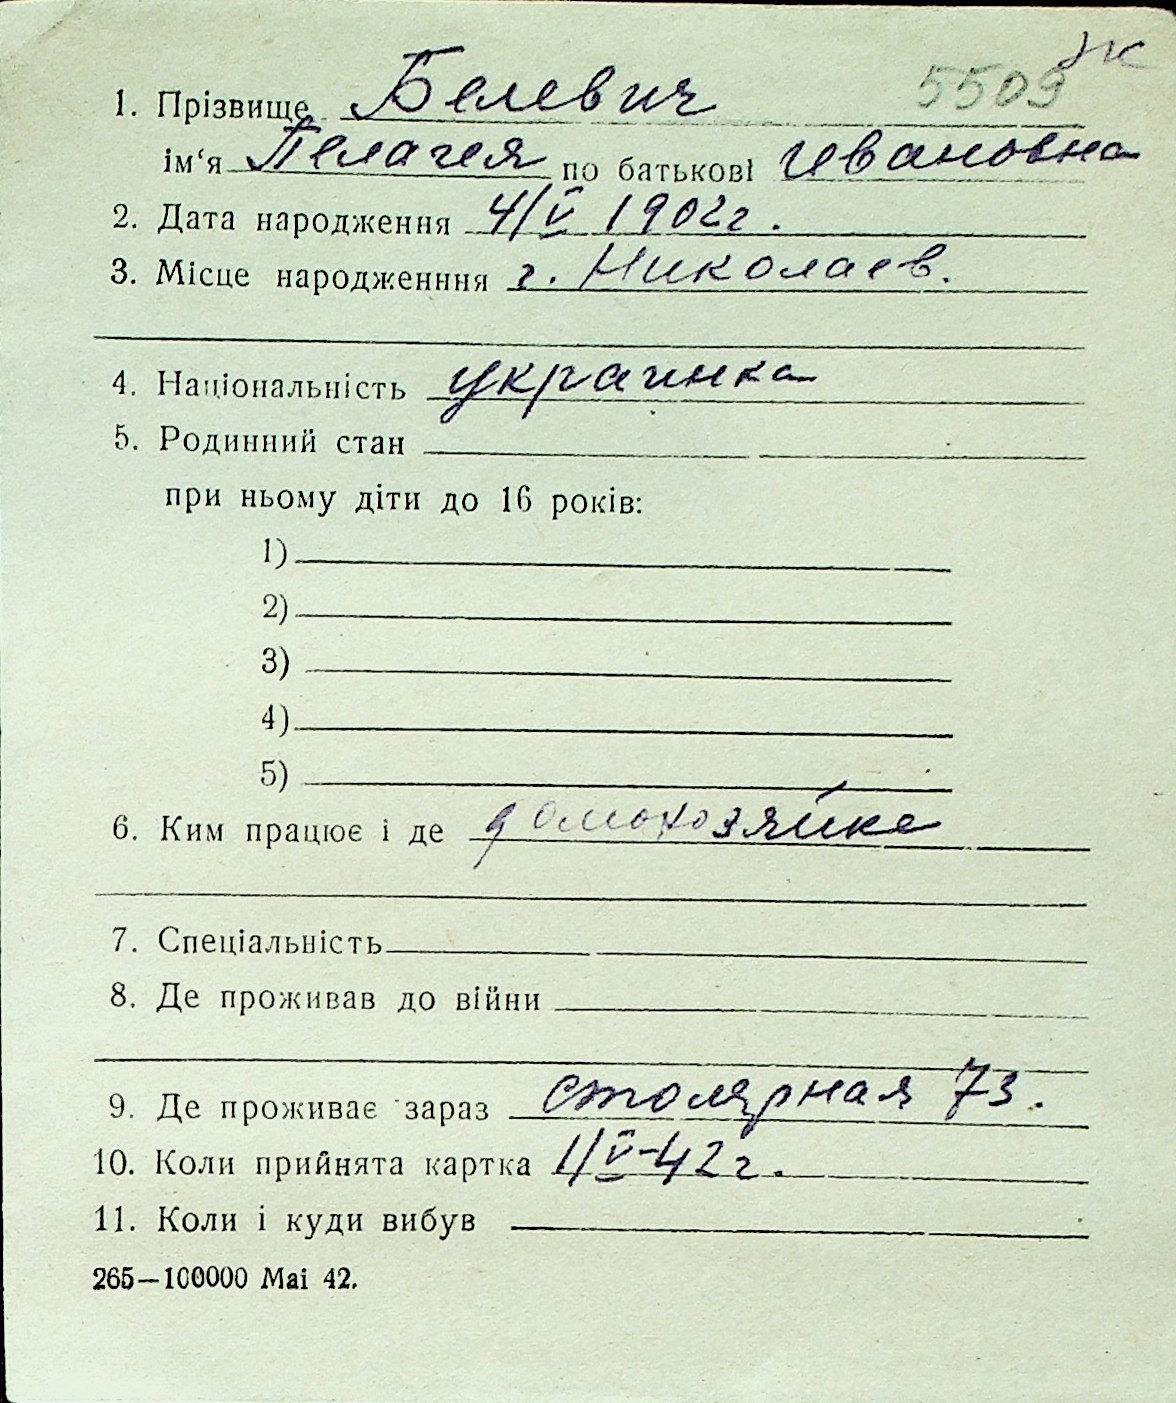 ук
5509
1. Прізвище Белевич
ім‘я Пелагея по батькові Ивановна
2. Дата народження 4/V 1902г.
3. Місце народженння г. Николаев.
4. Національність украинка
5. Родинний стан
при ньому діти до 16 років:
1)
2)
3)
4)
5)
6. Ким працює і де домохозяйка
7. Спеціальність
8. Де проживав до війни
9. Де проживає зараз Столярная 73.
10. Коли прийнята картка 1/V-42г.
11. Коли і куди вибув
265—100000 Mai 42.